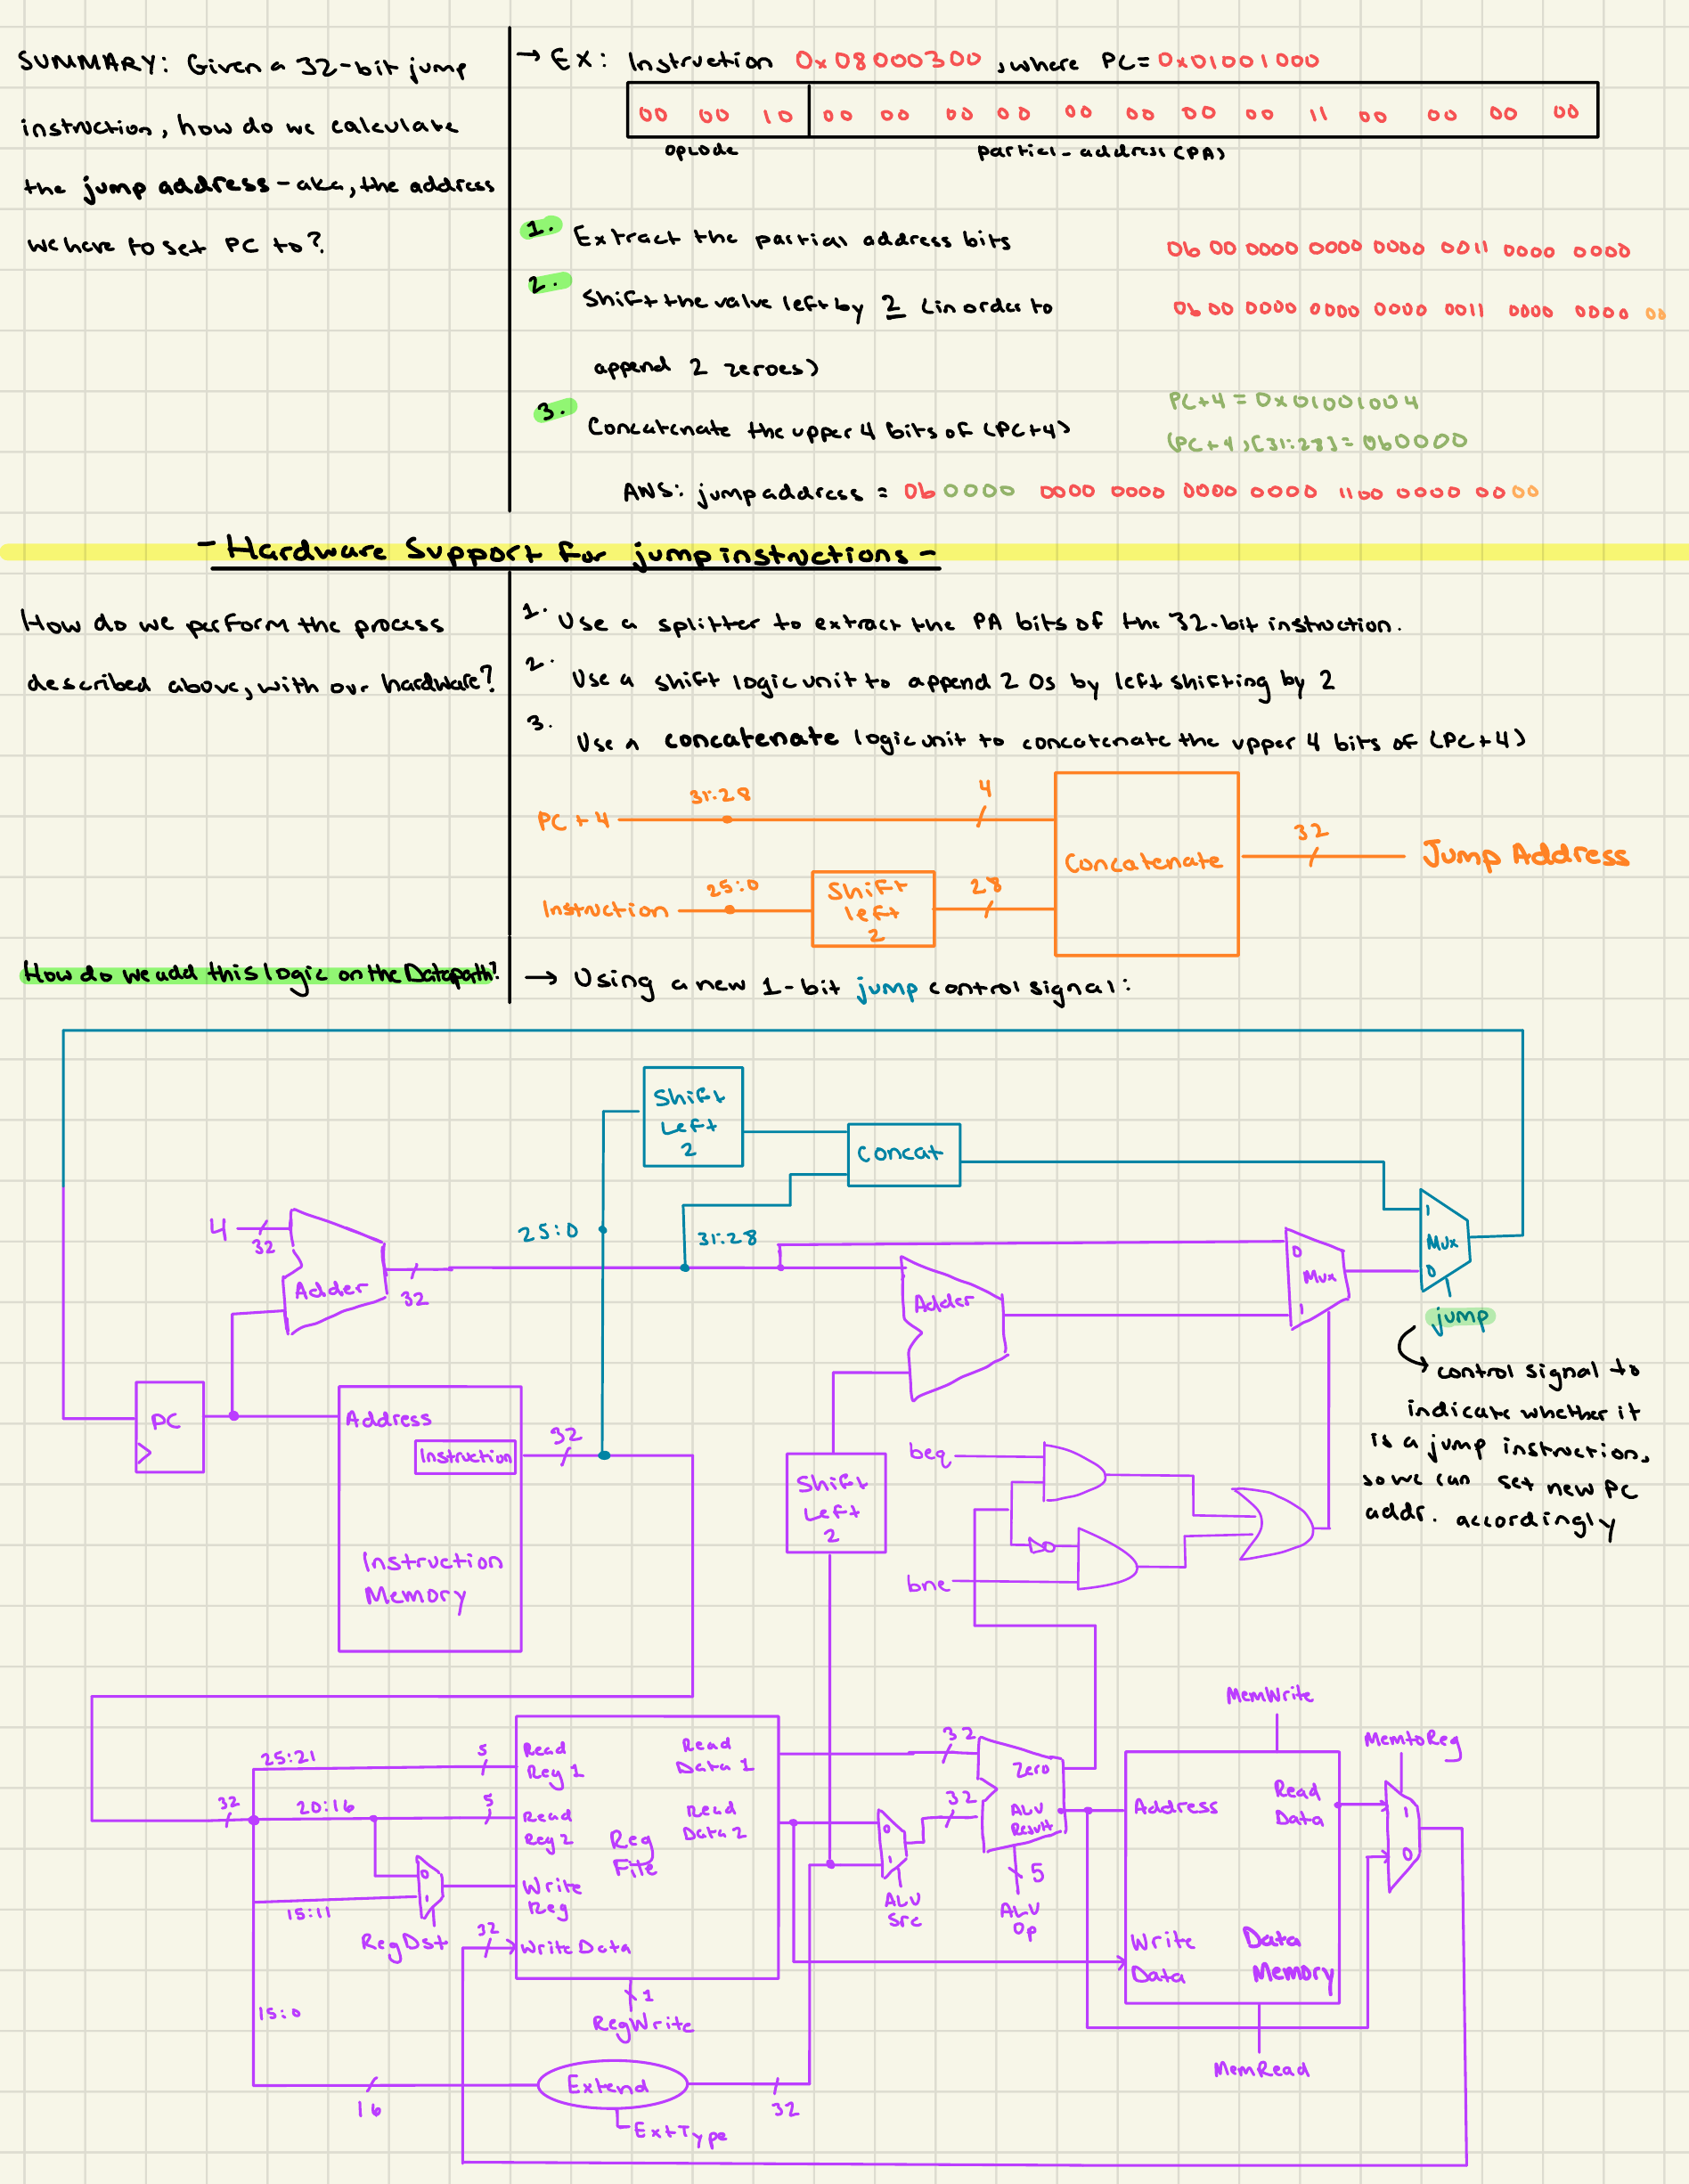 SUMMARY: Given a 32-bit jump
instruction, how do we calculate
the jump address - aka, the address
we have to set PC to?
→ EX: Instruction 0x08000300, where PC=0x01001000
00 00 10 00 00 00 00 00 00 00 00 11 00 00 00 00
opcode
partial-address (PA)
1. Extract the partial address bits
0b 00 0000 0000 0000 0011 0000 0000
2. Shift the value left by 2 (in order to
append 2 zeroes)
0b 00 0000 0000 0000 0011 0000 0000 00
3. Concatenate the upper 4 bits of (PC+4)
PC+4 = 0x01001004
(PC+4)[31:28] = 0b0000
ANS: jump address = 0b 0000 0000 0000 0000 0000 1100 0000 0000
- Hardware Support for jump instructions -
How do we perform the process
described above, with our hardware?
1. Use a splitter to extract the PA bits of the 32-bit instruction.
2. Use a shift logic unit to append 2 0s by left shifting by 2
3. Use a concatenate logic unit to concatenate the upper 4 bits of (PC+4)
PC + 4
31:28
4
Instruction
25:0
Shift
left
2
28
Concatenate
32
Jump Address
How do we add this logic on the Datapath?
→ Using a new 1-bit jump control signal:
Shift
Left
2
Concat
25:0
31:28
4
32
Adder
32
Adder
0
Mux
1
1
Mux
0
jump
control signal to
indicate whether it
is a jump instruction,
so we can set new PC
addr. accordingly
PC
Address
Instruction
32
Instruction
Memory
Shift
Left
2
beq
bne
MemWrite
MemtoReg
25:21
5
Read
Reg 1
Read
Data 1
32
Zero
32
20:16
5
Read
Reg 2
Read
Data 2
Reg
File
0
1
32
ALU
Result
Address
Read
Data
1
0
0
1
15:11
Write
Reg
RegDst
32
Write Data
ALU
Src
5
ALU
Op
Write
Data
Data
Memory
1
RegWrite
15:0
16
Extend
32
ExtType
MemRead